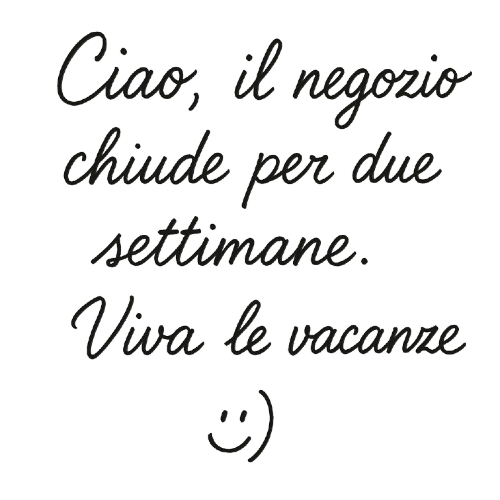 Ciao, il negozio
chiude per due
settimane.
Viva le vacanze
:)